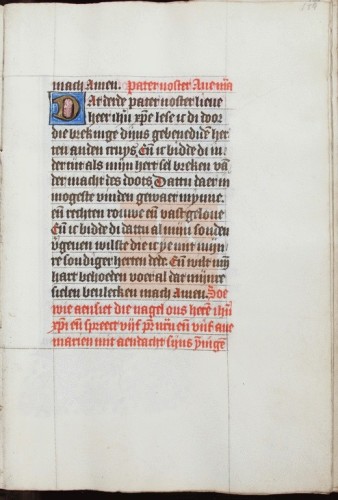 mach Amen. Pater noster Aue ma
Dat derde pater noster lieue
heer ihu xpe lese ic di door
die brekinge dijns gebenedide her
ten an den cruys. En ic bidde di in
der tijt als mijn hert sel breken van
der macht des doots. Dattu daer in
mogeste vinden gewaer mynne.
en rechten rouwe en vast geloue
En ic bidde di dattu al mijn sonden
vgeuen wilste die ic ye mit myn
re sondiger herten dede. En wilt mijn
hart behoeden voer al dat mijnre
sielen beulecken mach Amen. Soe
wie aensiet die nagel ons here ihu
xpi en spreect vijf pr nrn en vijf aue
marien mit aendacht sijns